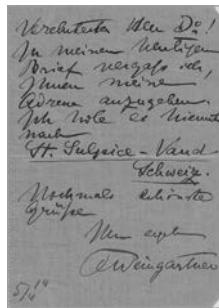 Verehrtester Herr Dr!
In meinem heutigen
Brief vergass ich,
Ihnen meine
Adresse anzugeben.
Ich hole es hiemit
nach
St. Sulpice - Vaud
Schweiz.
Nochmals schönste
Grüße
Ihr ergeb
Weingartner